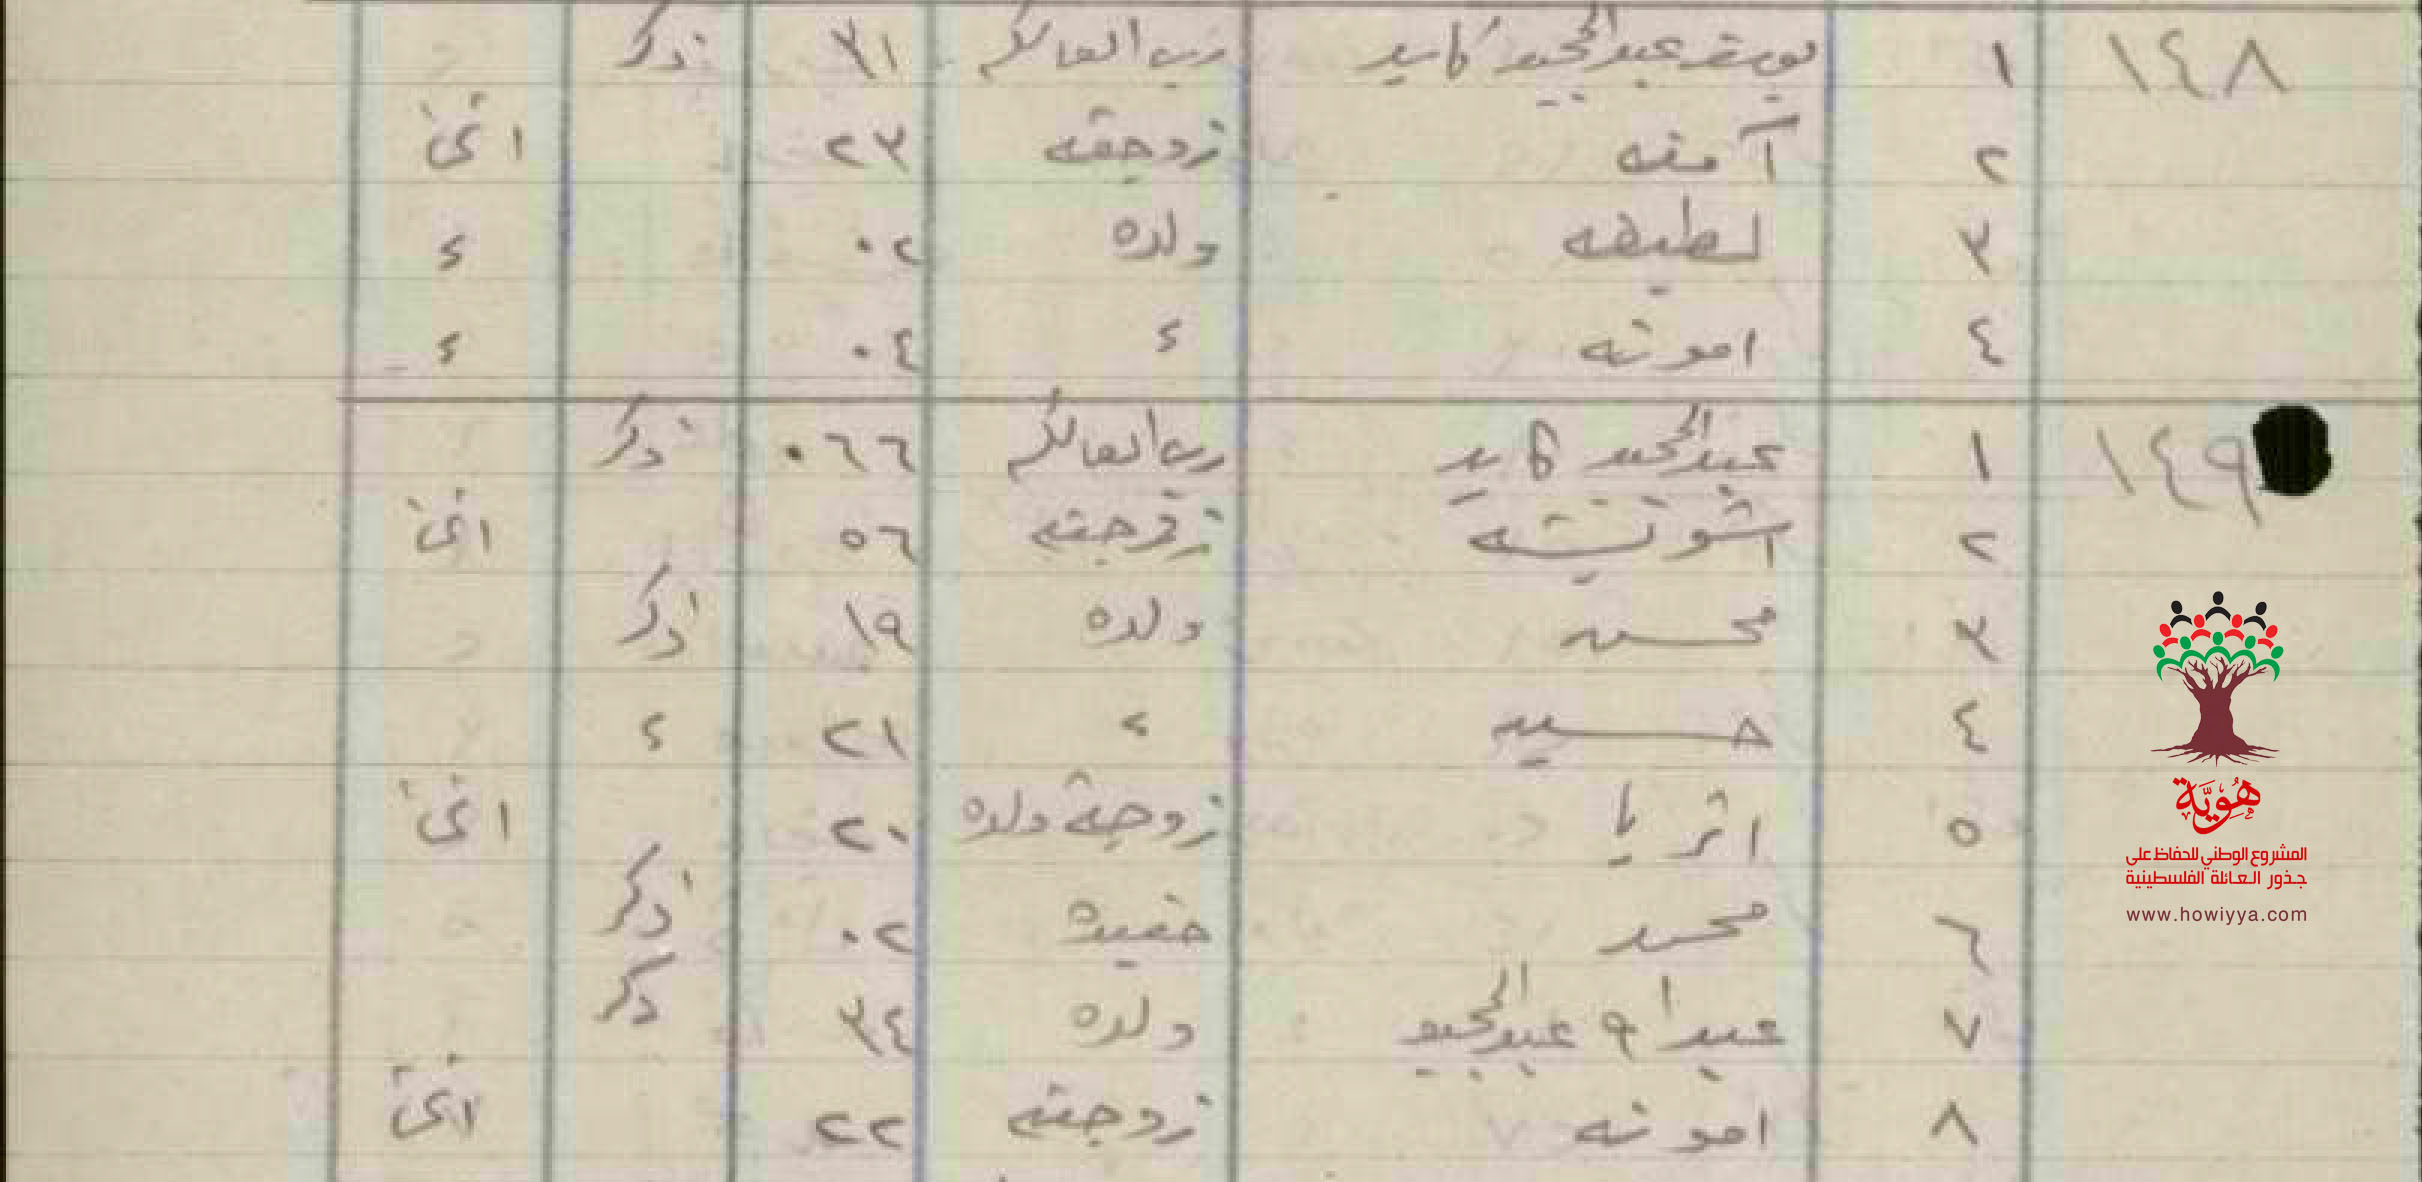 ١٤٨ ١ يوسف عبد المجيد كايد رب العائله ٣١ ذكر
٢ آمنه زوجته ٢٣ انثى
٣ لطيفه ولده ٠٢ ء
٤ امونه ء ٠٤ ء
١٤٩ ١ عبد المجيد كايد رب العائله ٠٦٦ ذكر
٢ زوجته ٥٦ انثى
٣ محسن ولده ١٩ ذكر
٤ حسين ء ٢١ ء
٥ اثريا زوجة ولده ٢٠ انثى
٦ محمد حفيده ٠٢ ذكر
٧ عبد المجيد ولده ٣٤ ذكر
٨ امونه زوجته ٢٢ انثى
هُوِيَّة
المشروع الوطني للحفاظ على
جذور العائلة الفلسطينية
www.howiyya.com